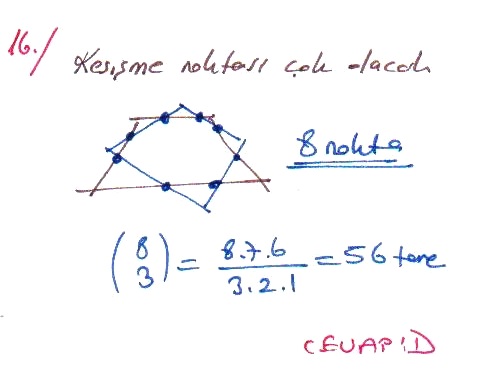 16./ Kesişme noktası çok olacak
8 nokta
(8 3) = 8.7.6 / 3.2.1 = 56 tane
CEVAP: D